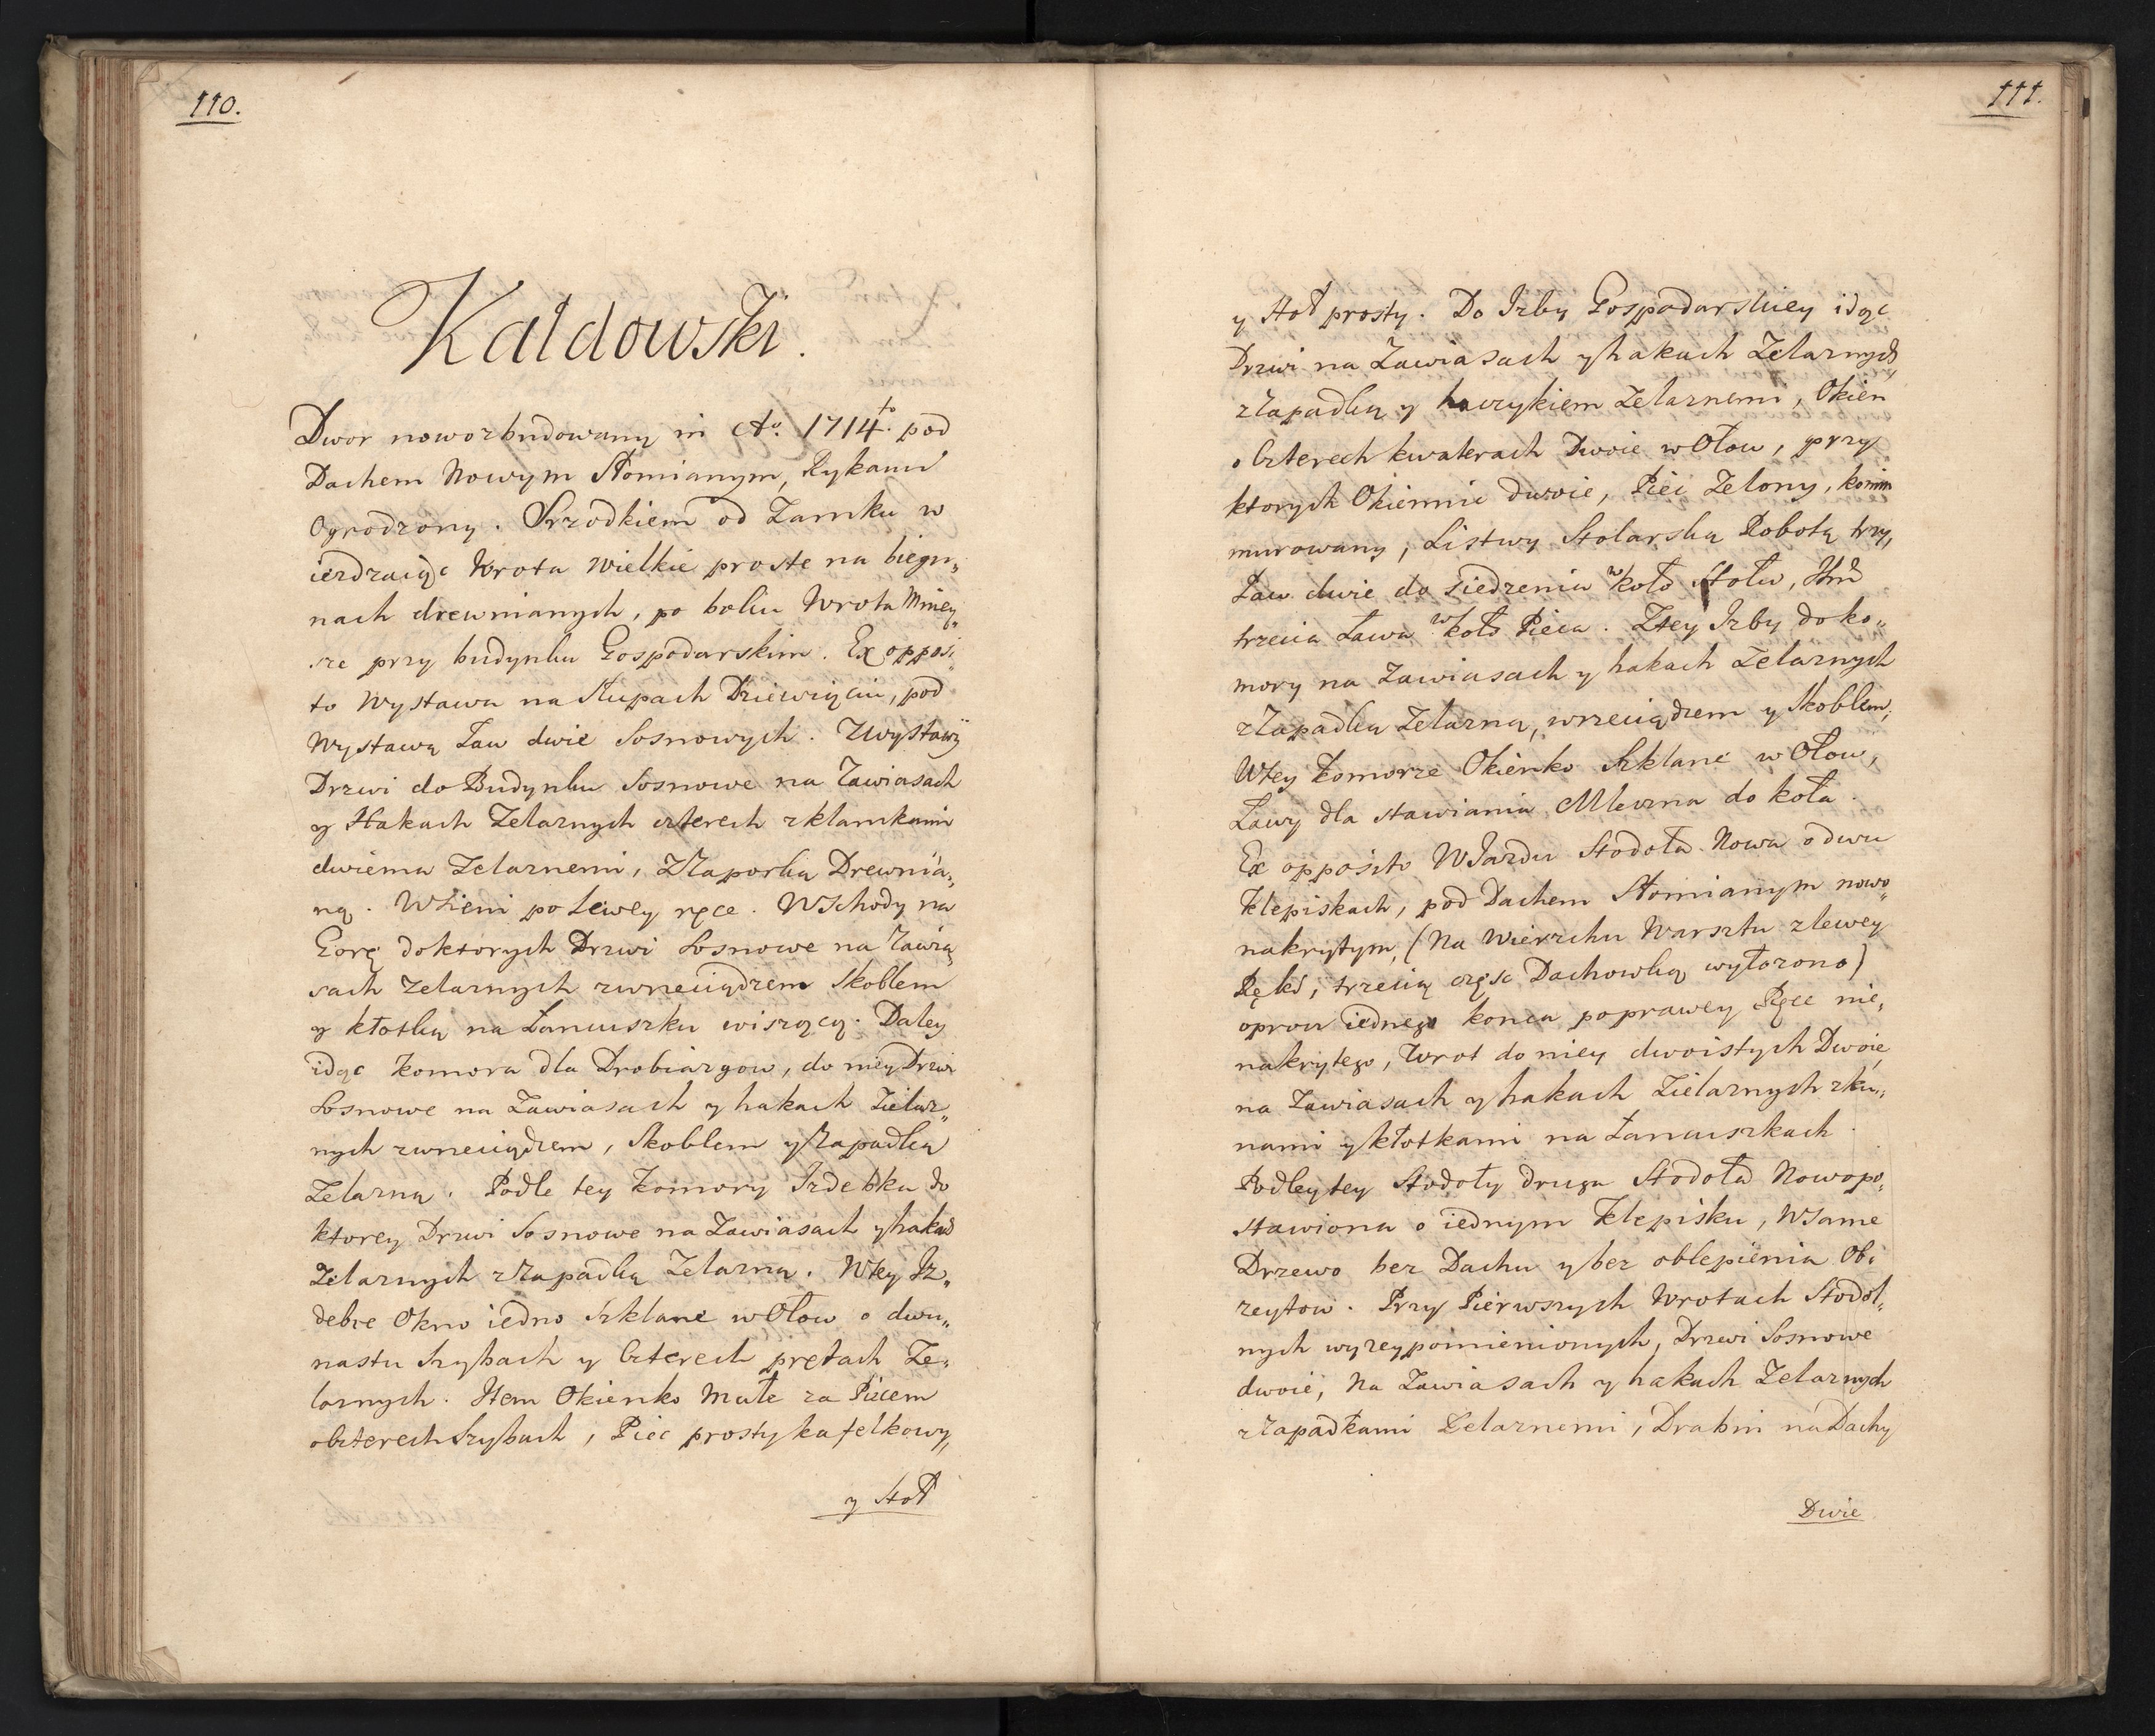 110.
Kaldowski.
Dwor nowozbudowany in Ao. 1714to. pod
Dachem Nowym Słomianym, Rykami
Ogrodzony. Srzodkiem od Zamku w
ierdzaiąc Wrota wielkie proste na biegu„
nach drewnianych, po boku Wrota Mniey„
sze przy budynku Gospodarskim. Ex opposi„
to Wystawa na Słupach Dziewiąciu, pod
Wystawą Ław dwie Sosnowych. Z Wystawy
Drzwi do Budynku Sosnowe na Zawiasach
y Hakach Zelaznych czterech z klamkami
dwiema Zelaznemi, z Zaporką Drewnia„
ną. W Sieni po Lewey ręce. Wschody na
Gorę do ktorych Drzwi Sosnowe na Zawia„
sach Zelaznych z wrzeciądzem Skoblem
y kłotką na Łancuszku wiszącą. Daley
idąc Komora dla Drobiazgow, do niey Drzwi
Sosnowe na Zawiasach y hakach Zielaz„
nych z wrzeciądzem, Skoblem y Zapadką
Zelazną. Podle tey Komory Izdebka do
ktorey Drzwi Sosnowe na Zawiasach y hakach
Zelaznych z Zapadką Zelazną. W tey Iz„
debce Okno iedno Szklane w Ołow o dwu„
nastu Szybach y Czterech prętach Ze„
laznych. Item Okienko Małe za Piecem
o Czterech Szybach, Piec prosty kafelkowy,
y Stoł
111.
y Stoł prosty. Do Izby Gospodarskiey idąc
Drzwi na Zawiasach y hakach Zelaznych
z Zapadką y haczykiem Zelaznemi, Okien
o Czterech kwaterach Dwoie w Ołow, przy
ktorych Okiennic dwoie, Piec Zelony, komin
murowany, Listwy Stolarską Robotą trzy,
Ław dwie do siedzenia w koło Stołu,
trzecia Ława w koło Pieca. Z tey Izby do ko„
mory na Zawiasach y hakach Zelaznych
z Zapadką Zelazną, wrzeciądzem y Skoblem,
W tey Komorze Okienko Szklane w Ołow,
Ławy dla stawiania Mleczna do koła.
Ex opposito Wiazdu Stodoła Nowa o dwu
Klepiskach, pod Dachem Słomianym nowo„
nakrytym, (Na Wierzchu Warsztu z lewey
Ręki, trzecią częsc Dachowką wyłozono)
oprocz iednego konca po prawey Ręce nie„
nakrytego, Wrot do niey dwoistych Dwoie,
na Zawiasach y hakach Zielaznych z ku„
nami y kłotkami na Łancuszkach.
Podley tey Stodoły druga Stodoła Nowopo„
stawiona o iednym Klepisku, W Same
Drzewo bez Dachu y bez oblepienia Ob„
zeytow. Przy Pierwszych Wrotach Stodol„
nych wyzey pomienionych, Drzwi Sosnowe
dwoie, Na Zawiasach y hakach Zelaznych
z Zapadkami Zelaznemi, Drabin na Dachy
Dwie